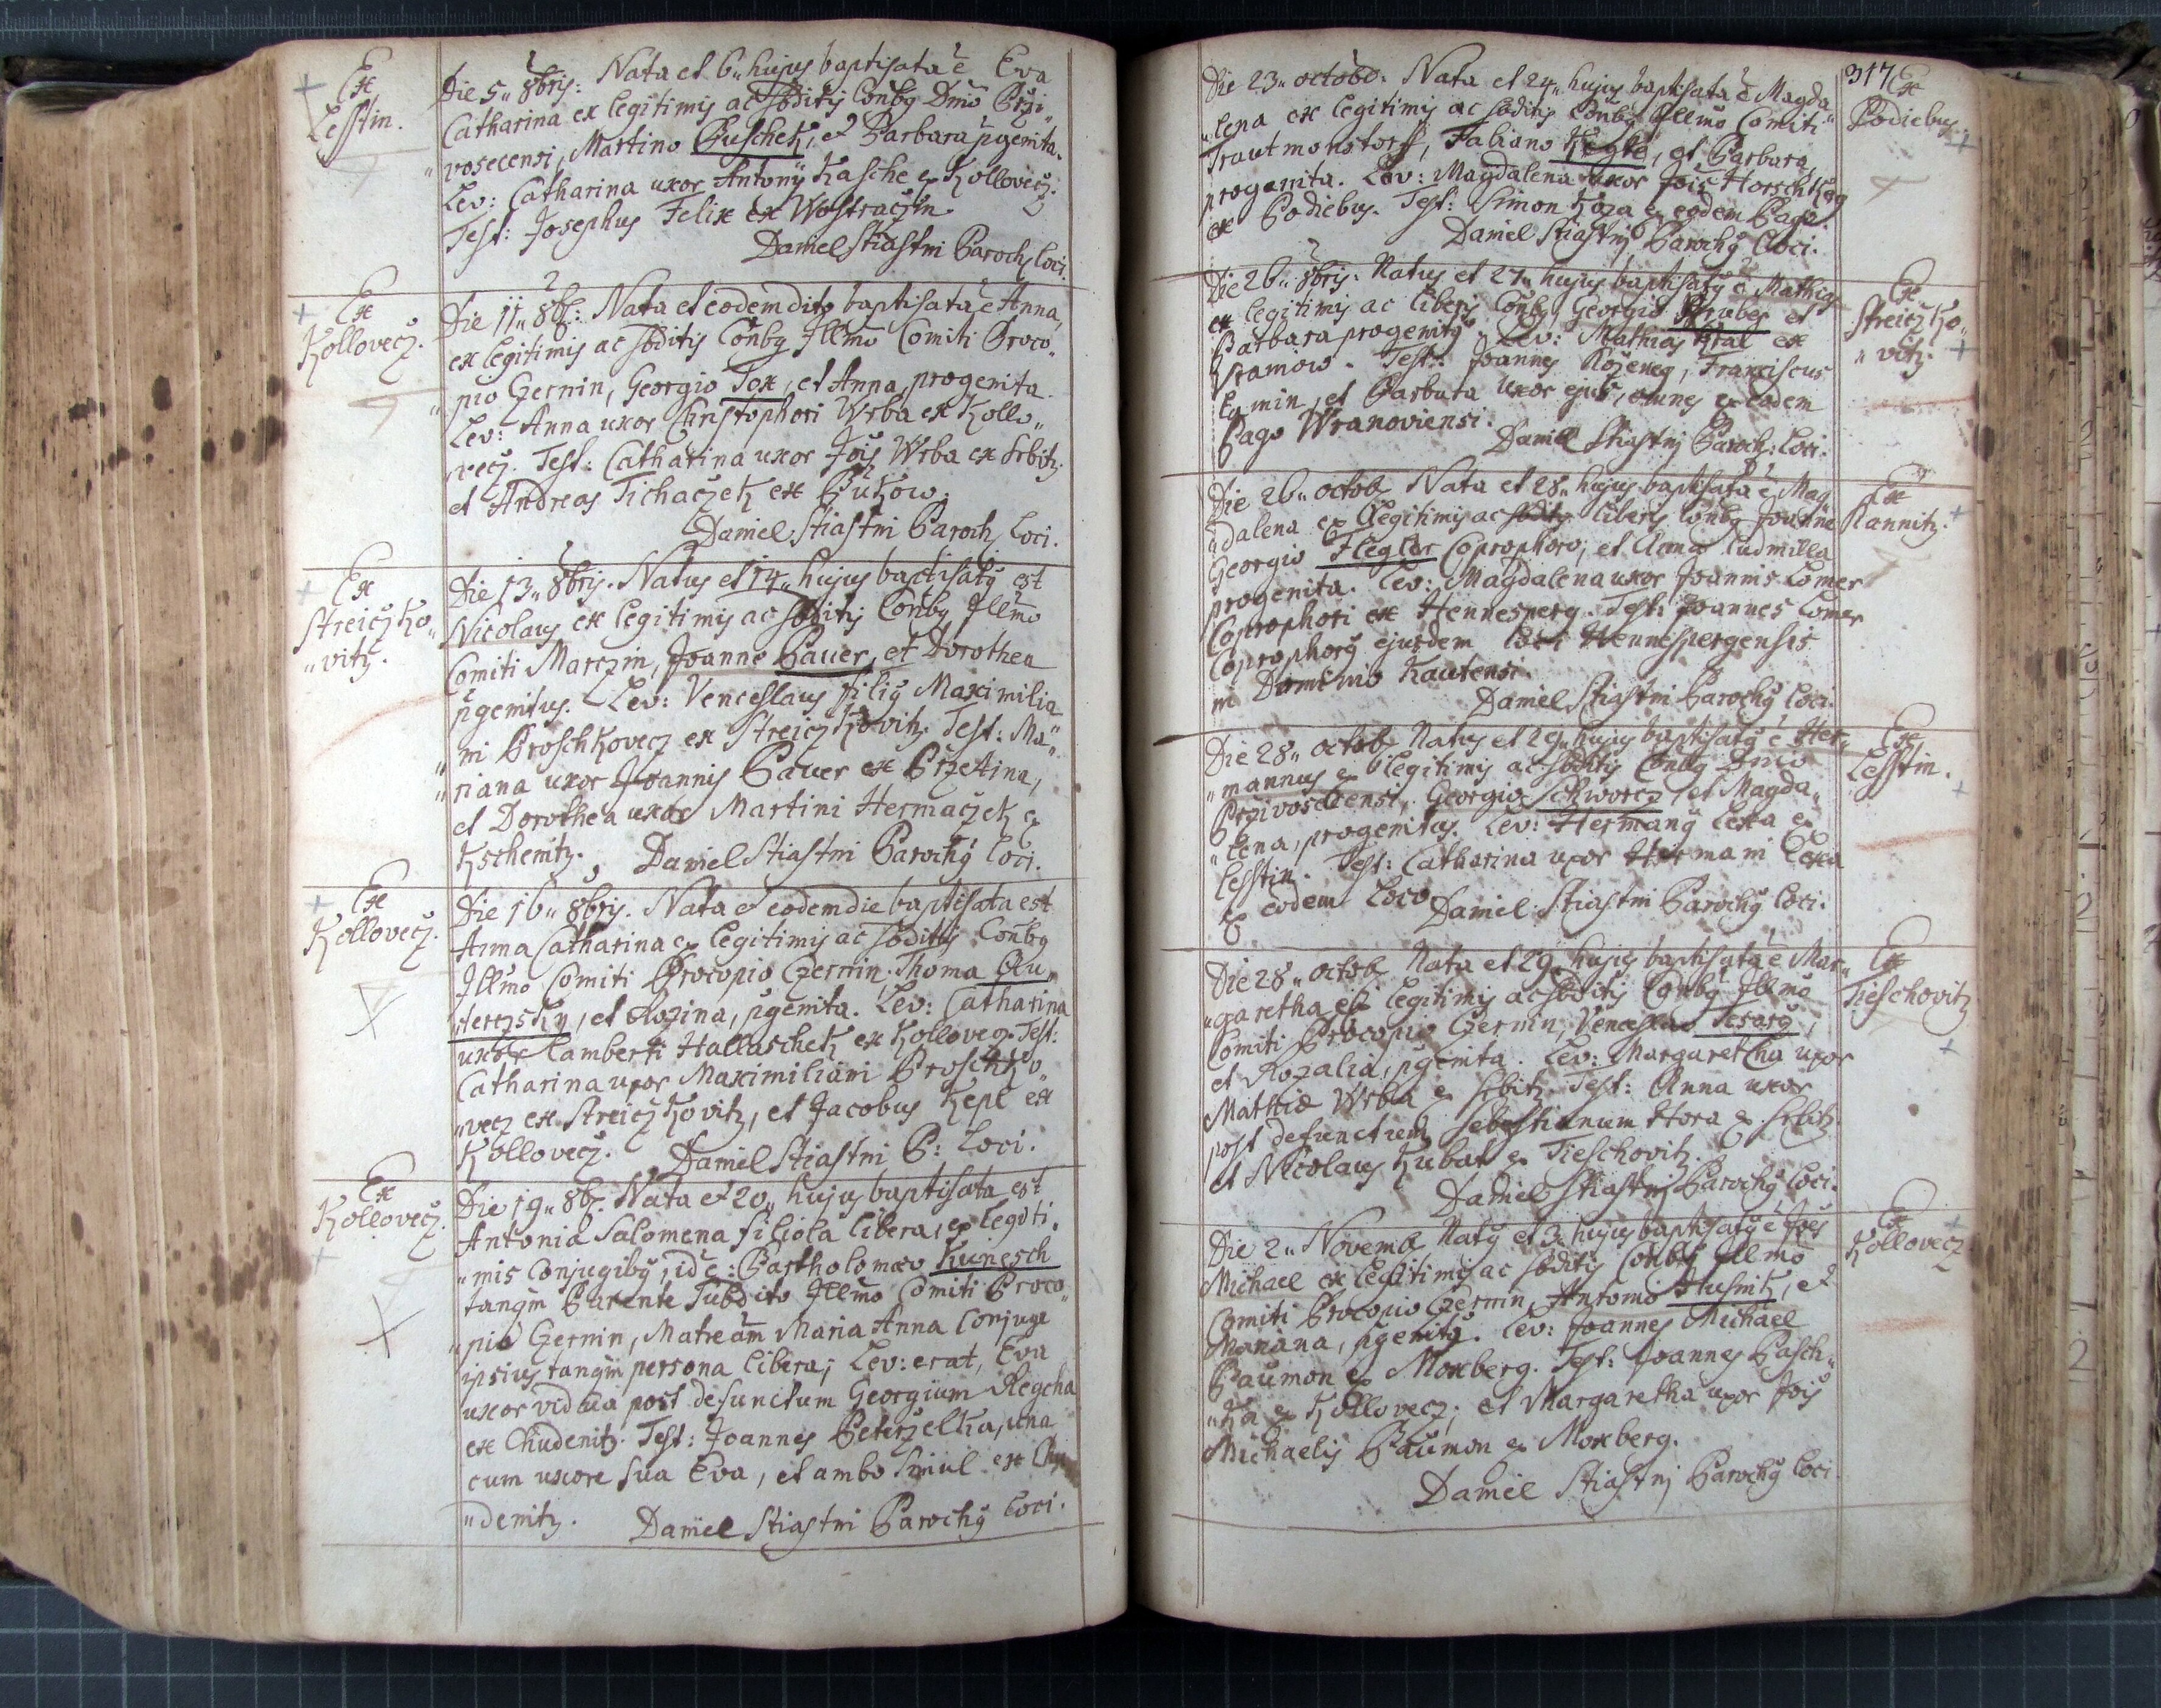 Ex
Lesstin.
Die 5„ 8bris: Nata et 6„ hujus baptisata ē Eva
Catharina ex legitimis ac sbditis Conbg Dnio Przi„
„vosecensi, Martino Puschek, et Barbara pgenita.
Lev: Catharina uxor Antonÿ Kasche ex Kollovecz.
Test: Josephus Felix ex Wostraczin.
Daniel Stiastni Paroch Loci.
Ex
Kollovecz.
Die 11„ 8b: Nata et eodem dito baptisata ē Anna,
ex legitimis ac sbditis Conbg Illmo Comiti Proco„
„pio Czernin, Georgio Tox, et Anna, progenita.
Lev: Anna uxor Christophori Wrba ex Kollo„
„vecz. Test: Catharina uxor Jois Wrba ex Srbitz.
et Andreas Tichaczek ex Pukow.
Daniel Stiastni Paroch Loci.
Ex
Streiczko„
„vitz.
Die 13„ 8bris. Natus et 14„ hujus baptisatg est
Nicolaus ex legitimis ac sbditis Conbg Illmo
Comiti Marczin, Joanne Bauer, et Dorothea
pgenitus. Lev: Venceslaus filig Maximilia
„ni Proschkovecz ex Streiczkovitz. Test: Ma„
„riana uxor Joannis Bauer ex Przetina,
et Dorothea uxor Martini Hermaczek ex
Kschenitz. Daniel Stiastni Parochg Loci.
Ex
Kollovecz.
Die 16„ 8bris. Nata et eodem die baptisata est
Anna Catharina ex legitimis ac sbditis Conbg
Illmo Comiti Procopio Czernin, Thoma Au„
„terzsky, et Rozina, pgenita. Lev: Catharina
uxor Lamberti Hallaschek ex Kollovecz. Test:
Catharina uxor Maximiliani Proschko„
„vecz ex Streiczkovitz, et Jacobus Kepl ex
Kollovecz. Daniel Stiastni P: Loci.
Ex
Kollovecz.
Die 19„ 8b: Nata et 20„ hujus baptisata est
Antonia Salomena filiola libera, ex legiti„
„mis Conjugibg, id ē: Bartholomæo Kunesch
tanqm Parente Subdito Illmo Comiti Proco„
„pio Czernin, Matre am Maria Anna Conjuge
ipsius tanqm persona libera; Lev: erat, Eva
uxor vidua post defunctum Georgium Regcha
ex Chudenitz. Test: Joannes Peterzelka, una
cum uxore sua Eva, et ambo simul ex Chu
„denitz. Daniel Stiastni Parochg Loci.
317
Die 23„ octobo: Nata et 24„ hujus baptisata ē Magda
„lena ex legitimis ac sbditis Conbg Illmo Comiti
Trautmonstorff, Fabiano Kegle, et Barbara
progenita. Lev: Magdalena uxor Jois Horschkag
ex Podiebus. Test: Simon Koza ex eodem Pago.
Daniel Stiastnj Parochg Loci.
Ex
Podiebus.
Die 26„ 8bris. Natus et 27„ hujus baptisatg ē Mathias
ex legitimis ac liberis Conbg Georgio Hrubes et
Barbara progenitg. Lev: Mathias Kral ex
Wranow. Test: Joannes Kozeneg, Franciscus
Camin, et Barbara uxor ejus, omnes ex eodem
Pago Wranoviensi.
Daniel Stiastnj Paroch: Loci.
Ex
Streiczko„
„vitz.
Die 26„ octob Nata et 28„ hujus baptisata ē Mag„
„dalena ex legitimis ac sbditis liberis Conbg Joanne
Georgio Flegler Coprophoro, et Anna Ludmilla
progenita. Lev: Magdalena uxor Joannis Comer
Coprophori ex Hennesperg. Test: Joannes Comer
Coprophorg ejusdem Loci Hennespergensis
in Dominio Kautensi.
Daniel Stiastni Parochg Loci.
Ex
Kannitz.
Die 28„ octob Natus et 29„ hujus baptisatg ē Her„
„mannus ex legitimis ac sbditis Conbg Dnio
Przivosecensi, Georgio Schworcz, et Magda„
„lena, progenitus. Lev: Hermang Lexa ex
Lesstin. Test: Catharina uxor Hermani Lexa
Ex eodem Loco. Daniel Stiastni Parochg Loci.
Ex
Lesstin.
Die 28„ octob Nata et 29„ hujus baptisata ē Mar„
„garetha ex legitimis ac sbditis Conbg Illmo
Comiti Procopio Czernin, Venceslao Tesarg,
et Rozalia, pgenita. Lev: Margaretha uxor
Mathiæ Wrba ex Srbitz. Test: Anna uxor
post defunctum Sebastianum Hora ex Srbitz.
et Nicolaus Kubat ex Tieschovitz.
Daniel Stiastnj Parochg Loci.
Ex
Tieschovitz
Die 2„ Novemb Natg et 3„ hujus baptisatg ē Joēs
Michael ex legitimis ac sbditis Conbg Illmo
Comiti Procopio Czernin, Antonio Husnik, et
Mariana, pgenitg. Lev: Joannes Michael
Paumon ex Moxberg. Test: Joannes Pasch„
„ka ex Kollovecz; et Margaretha uxor Jois
Michaelis Paumon ex Moxberg.
Daniel Stiastnj Parochg Loci
Ex
Kollovecz